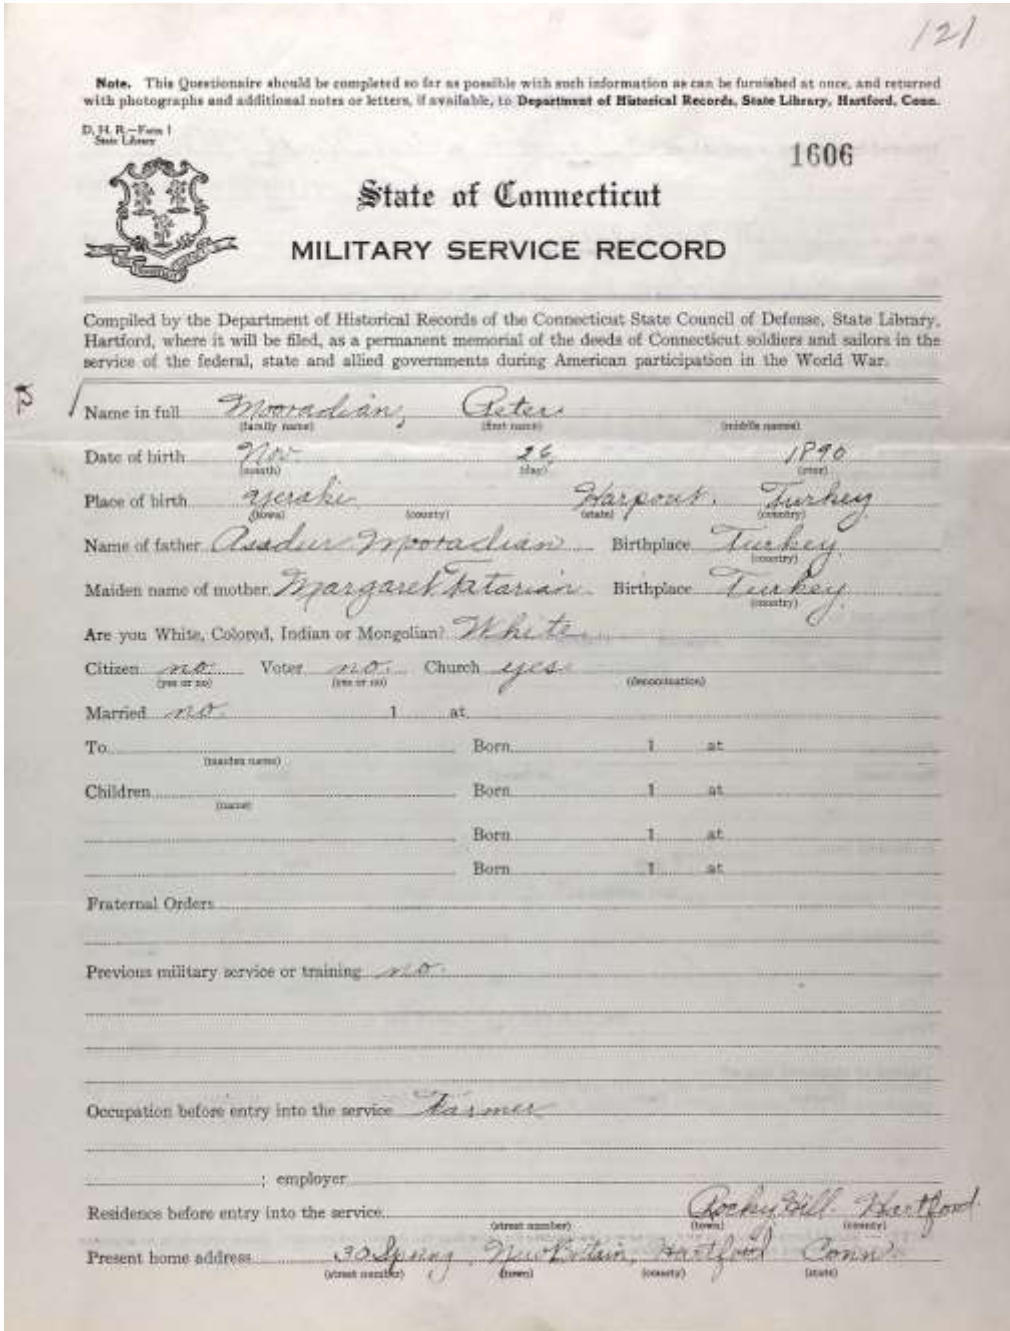 121
Note. This Questionaire should be completed so far as possible with such information as can be furnished at once, and returned
with photographs and additional notes or letters, if available, to Department of Historical Records, State Library, Hartford, Conn.
D. H. R.—Form 1
State Library
1606
State of Connecticut
MILITARY SERVICE RECORD
Compiled by the Department of Historical Records of the Connecticut State Council of Defense, State Library,
Hartford, where it will be filed, as a permanent memorial of the deeds of Connecticut soldiers and sailors in the
service of the federal, state and allied governments during American participation in the World War.
Name in full Mooradian, Peter
(family name) (first name) (middle names)
Date of birth Nov. 26, 1890
(month) (day) (year)
Place of birth Harpout. Turkey
(town) (county) (state) (country)
Name of father Asadur Mooradian Birthplace Turkey
(country)
Maiden name of mother Margaret Tatarian Birthplace Turkey
(country)
Are you White, Colored, Indian or Mongolian? White
Citizen no. Voter no. Church yes
(yes or no) (yes or no) (denomination)
Married no. 1 at
To Born 1 at
(maiden name)
Children Born 1 at
(name)
Born 1 at
Born 1 at
Fraternal Orders
Previous military service or training no.
Occupation before entry into the service Farmer
; employer
Residence before entry into the service Rocky Hill Hartford
(street number) (town) (county)
Present home address 30 Spring, New Britain, Hartford Conn.
(street number) (town) (county) (state)